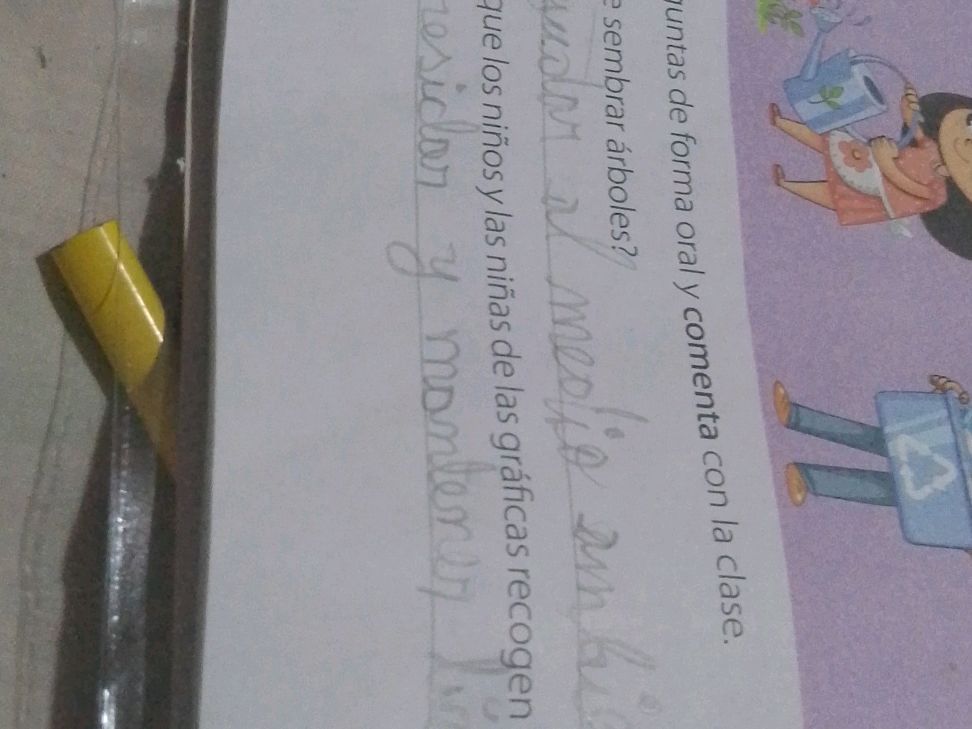 guntas de forma oral y comenta con la clase.
e sembrar árboles?
yudar al medio ambie
que los niños y las niñas de las gráficas recogen
resiclar y mantener lim